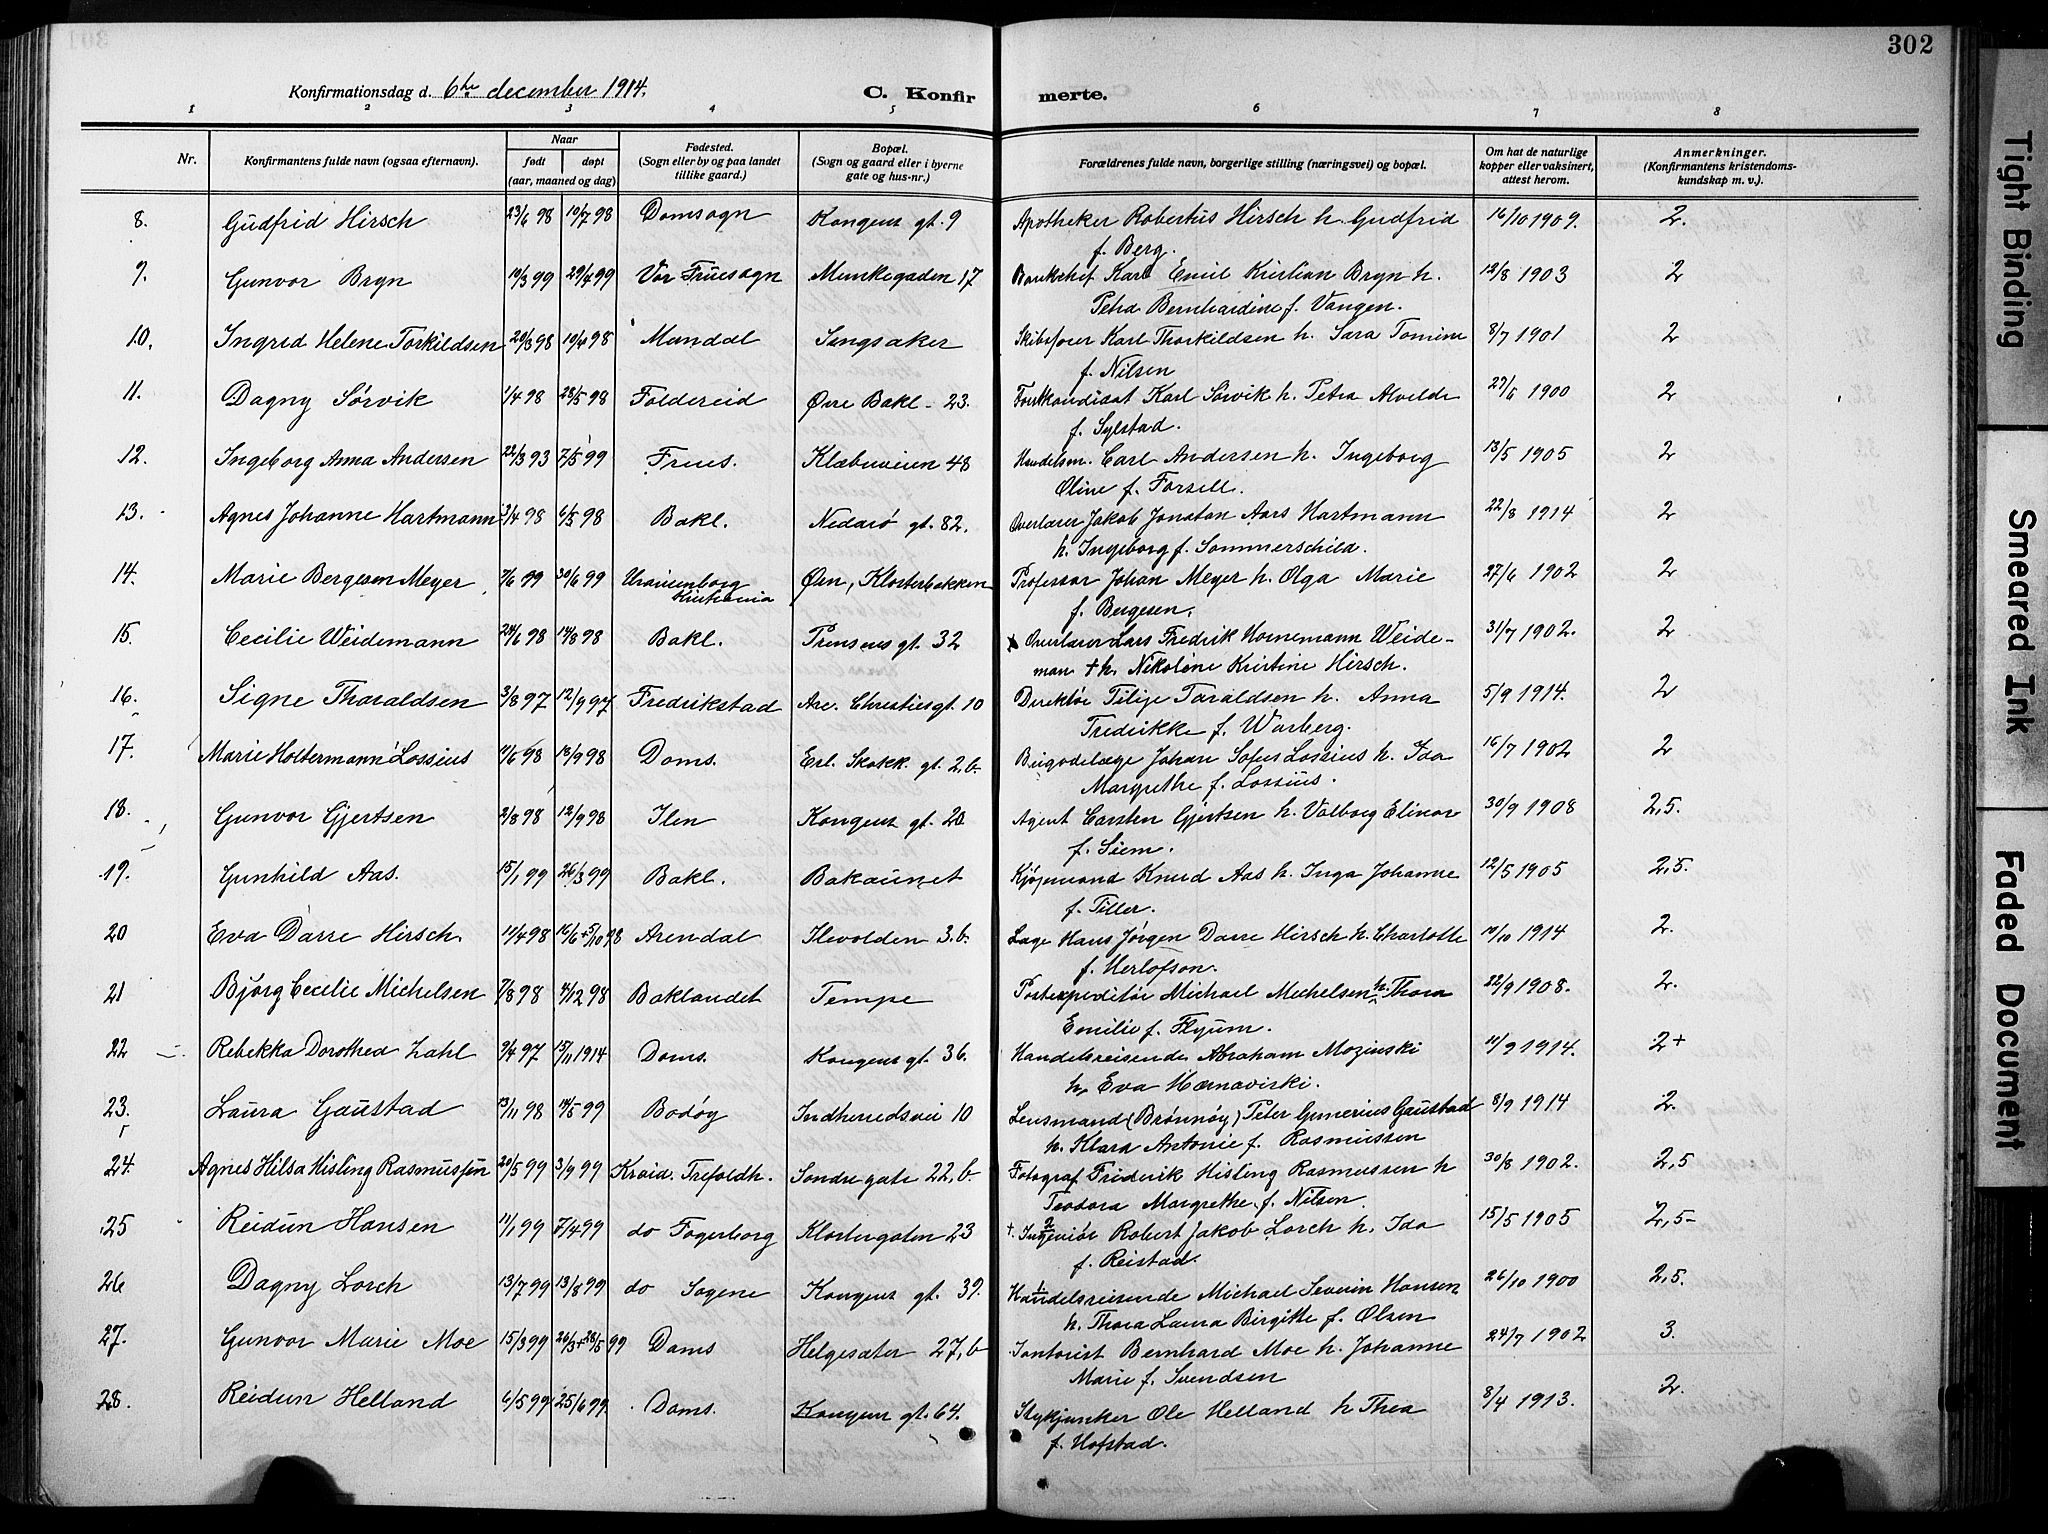 302
Konfirmationsdag d. 6te december 1914.
C. Konfir merte.
1 2 3 4 5 6 7 8
Nr.
Konfirmantens fulde navn (ogsaa efternavn).
Naar
født døpt
(aar, maaned og dag)
Fødested.
(Sogn eller by og paa landet
tillike gaard.)
Bopæl.
(Sogn og gaard eller i byerne
gate og hus-nr.)
Forældrenes fulde navn, borgerlige stilling (næringsvei) og bopæl.
Om hat de naturlige
kopper eller vaksinert,
attest herom.
Anmerkninger.
(Konfirmantens kristendoms-
kundskap m. v.).
8. Gudfrid Hirsch 23/6 98 10/7 98 Domsogn Kongens gt. 9 Apotheker Robertus Hirsch h. Gudfrid 16/10 1909. 2.
f. Berg.
9. Gunvor Bryn 10/3 99 29/4 99 Vor Fruesogn Munkegaden 17 Bankchef Karl Emil Kristian Bryn h. 12/8 1903 2
Petra Bernhardine f. Vangen.
10. Ingrid Helene Torkildsen 20/3 98 10/4 98 Mandal Singsaker Skibsfører Karl Thorkildsen h. Sara Tomine 8/7 1901 2
f. Nilsen
11. Dagny Sørvik 1/4 98 28/5 98 Foldereid Øvre Bakl. 23. Forstkandidat Karl Sørvik h. Petra Alvelde 29/6 1900 2
f. Sylstad.
12. Ingeborg Anna Andersen 22/3 93 7/5 99 Frues. Klæbuveien 48 Handelsm. Carl Andersen h. Ingeborg 13/5 1905 2
Oline f. Forsell.
13. Agnes Johanne Hartmann 3/4 98 6/5 98 Bakl. Nedarø gt. 82. Overlærer Jakob Jonatan Aars Hartmann 22/8 1914 2
h. Ingeborg f. Sommerschild.
14. Marie Bergesen Meyer 7/6 99 30/6 99 Uranienborg Kristiania Øvn, Klosterbakken Professor Johan Meyer h. Olga Marie 27/6 1902 2
f. Bergesen.
15. Cecilie Weidemann 24/6 98 14/8 98 Bakl. Prinsens gt. 32 Overlærer Lars Fredrik Hornemann Weide- 31/7 1902. 2
man + h. Nikoline Kristine Hirsch.
16. Signe Tharaldsen 3/8 97 12/9 97 Fredrikstad Are. Christies gt. 10 Direktør Tilije Taraldsen h. Anna 5/9 1914. 2
Fredrikke f. Warberg.
17. Marie Holtermann Lossius 11/6 98 18/9 98 Doms. Erl. Skakk. gt. 2.b. Brigadelæge Johan Sofus Lossius h. Ida 16/7 1902 2
Margrethe f. Lossius.
18. Gunvor Gjertsen 2/8 98 12/9 98 Ilen Kongens gt. 20 Agent Carsten Gjertsen h. Valborg Elinor 30/9 1908 2,5.
f. Siem.
19. Gunhild Aas. 15/1 99 26/3 99 Bakl. Bakaunet Kjøpmand Knud Aas h. Inga Johanne 12/5 1905 2,5.
f. Tiller.
20 Eva Darre Hirsch. 11/4 98 16/6 + 5/10 98 Arendal Ilevolden 3.b. Læge Hans Jørgen Darre Hirsch h. Charlotte 10/10 1914 2.
f. Herlofson.
21 Bjørg Cecilie Michelsen 7/8 98 4/12 98 Baklandet Tempe Postexpeditør Michael Michelsen h. Thora 22/9 1908. 2.
Emilie f. Flyum.
22 Rebekka Dorothea Zahl 9/4 97 15/11 1914 Doms. Kongens gt. 36. Handelsreisende Abraham Mozinski 11/9 1914. 2+
h. Eva Mærnavirski.
23. Laura Gaustad 13/11 98 14/5 99 Bodøy Indherredsvei 10 Lensmand (Brønnøy) Peter Gunerius Gaustad 8/9 1914 2.
h. Klara Antonie f. Rasmussen
24. Agnes Hilsa Hisling Rasmussen 20/5 99 3/9 99 Kraid. Trefoldh. Søndre gate 22.b. Fotograf Fridrik Hisling Rasmussen h 30/8 1902. 2,5
Teodora Margrethe f. Nilsen.
25 Reidun Hansen 11/1 99 7/4 99 do Fagerborg Klostergaten 23 + 2 Ingeniør Robert Jakob Lorch h. Ida 15/5 1905 2,5-
f. Reistad.
26 Dagny Lorch 13/7 99 13/8 99 do Sagene Kongens gt. 39. 1 Handelsreisende Michael Severin Hansen 26/10 1900 2,5.
h. Thora Laura Birgithe f. Olsen
27. Gunvor Marie Moe 15/3 99 26/3 + 28/5 99 Doms Helgesæter 27,b Kontorist Bernhard Moe h. Johanne 24/7 1902 3.
Marie f. Svendsen
28. Reidun Helland 6/5 99 25/6 99 Doms. Kongens gt. 64. Stykjunker Ole Helland h Thea 8/4 1913. 2.
f. Hofstad.
Tight Binding
Smeared Ink
Faded Document